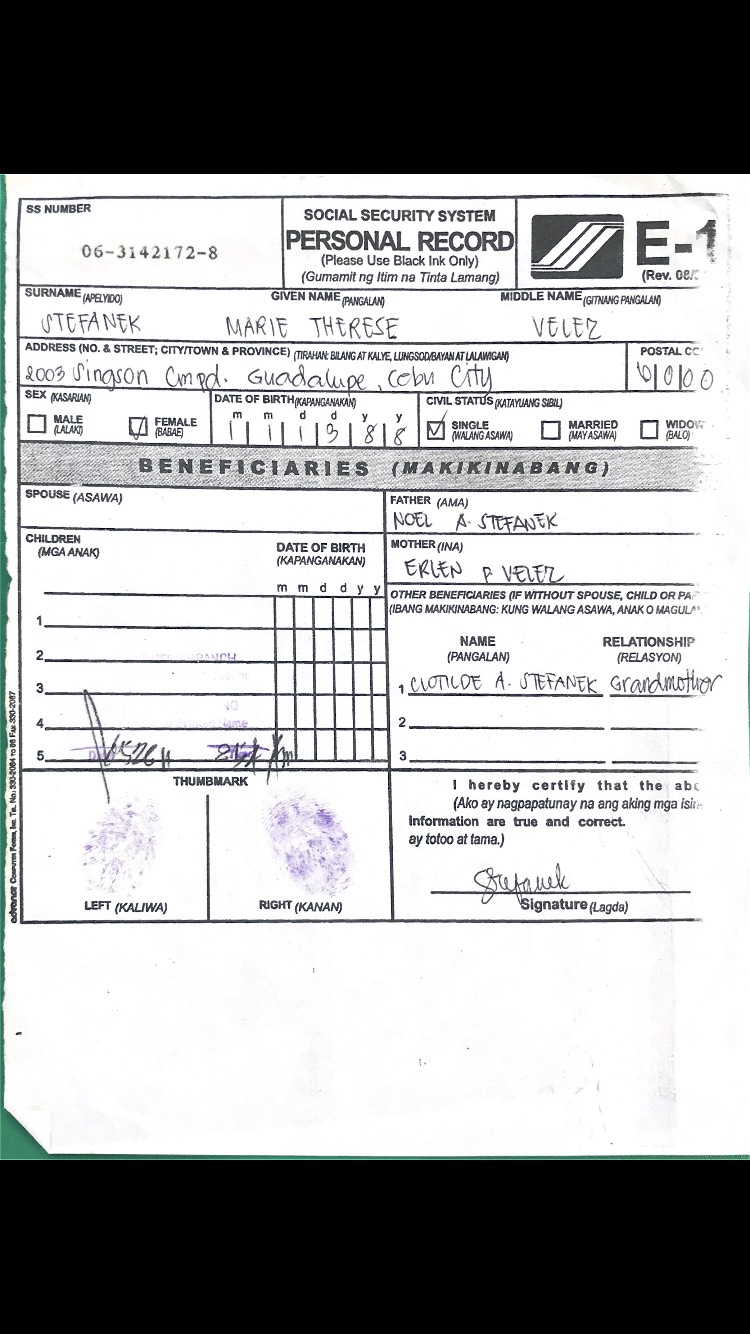 SS NUMBER
06-3142172-8
SOCIAL SECURITY SYSTEM
PERSONAL RECORD
(Please Use Black Ink Only)
(Gumamit ng Itim na Tinta Lamang)
E-1
(Rev. 08/
SURNAME (APELYIDO) GIVEN NAME (PANGALAN) MIDDLE NAME (GITNANG PANGALAN)
STEFANEK MARIE THERESE VELEZ
ADDRESS (NO. & STREET; CITY/TOWN & PROVINCE) (TIRAHAN: BILANG AT KALYE, LUNGSOD/BAYAN AT LALAWIGAN) POSTAL
2003 Singson Cmpd. Guadalupe, Cebu City 6000
SEX (KASARIAN) DATE OF BIRTH (KAPANGANAKAN) CIVIL STATUS (KATAYUANG SIBIL)
m m d d y y
MALE (LALAKI) FEMALE (BABAE) 1 1 1 3 8 8 SINGLE (WALANG ASAWA) MARRIED (MAY ASAWA) WIDOW (BALO)
BENEFICIARIES (MAKIKINABANG)
SPOUSE (ASAWA)
FATHER (AMA)
NOEL A. STEFANEK
CHILDREN
(MGA ANAK)
DATE OF BIRTH
(KAPANGANAKAN)
m m d d y y
1
2
3
4
5
MOTHER (INA)
ERLEN P. VELEZ
OTHER BENEFICIARIES (IF WITHOUT SPOUSE, CHILD OR
(IBANG MAKIKINABANG: KUNG WALANG ASAWA, ANAK O
NAME RELATIONSHIP
(PANGALAN) (RELASYON)
1 CLOTILDE A. STEFANEK Grandmother
2
3
THUMBMARK
LEFT (KALIWA) RIGHT (KANAN)
I hereby certify that the
(Ako ay nagpapatunay na ang aking mga
information are true and correct.
ay totoo at tama.)
Stefanek
Signature (Lagda)